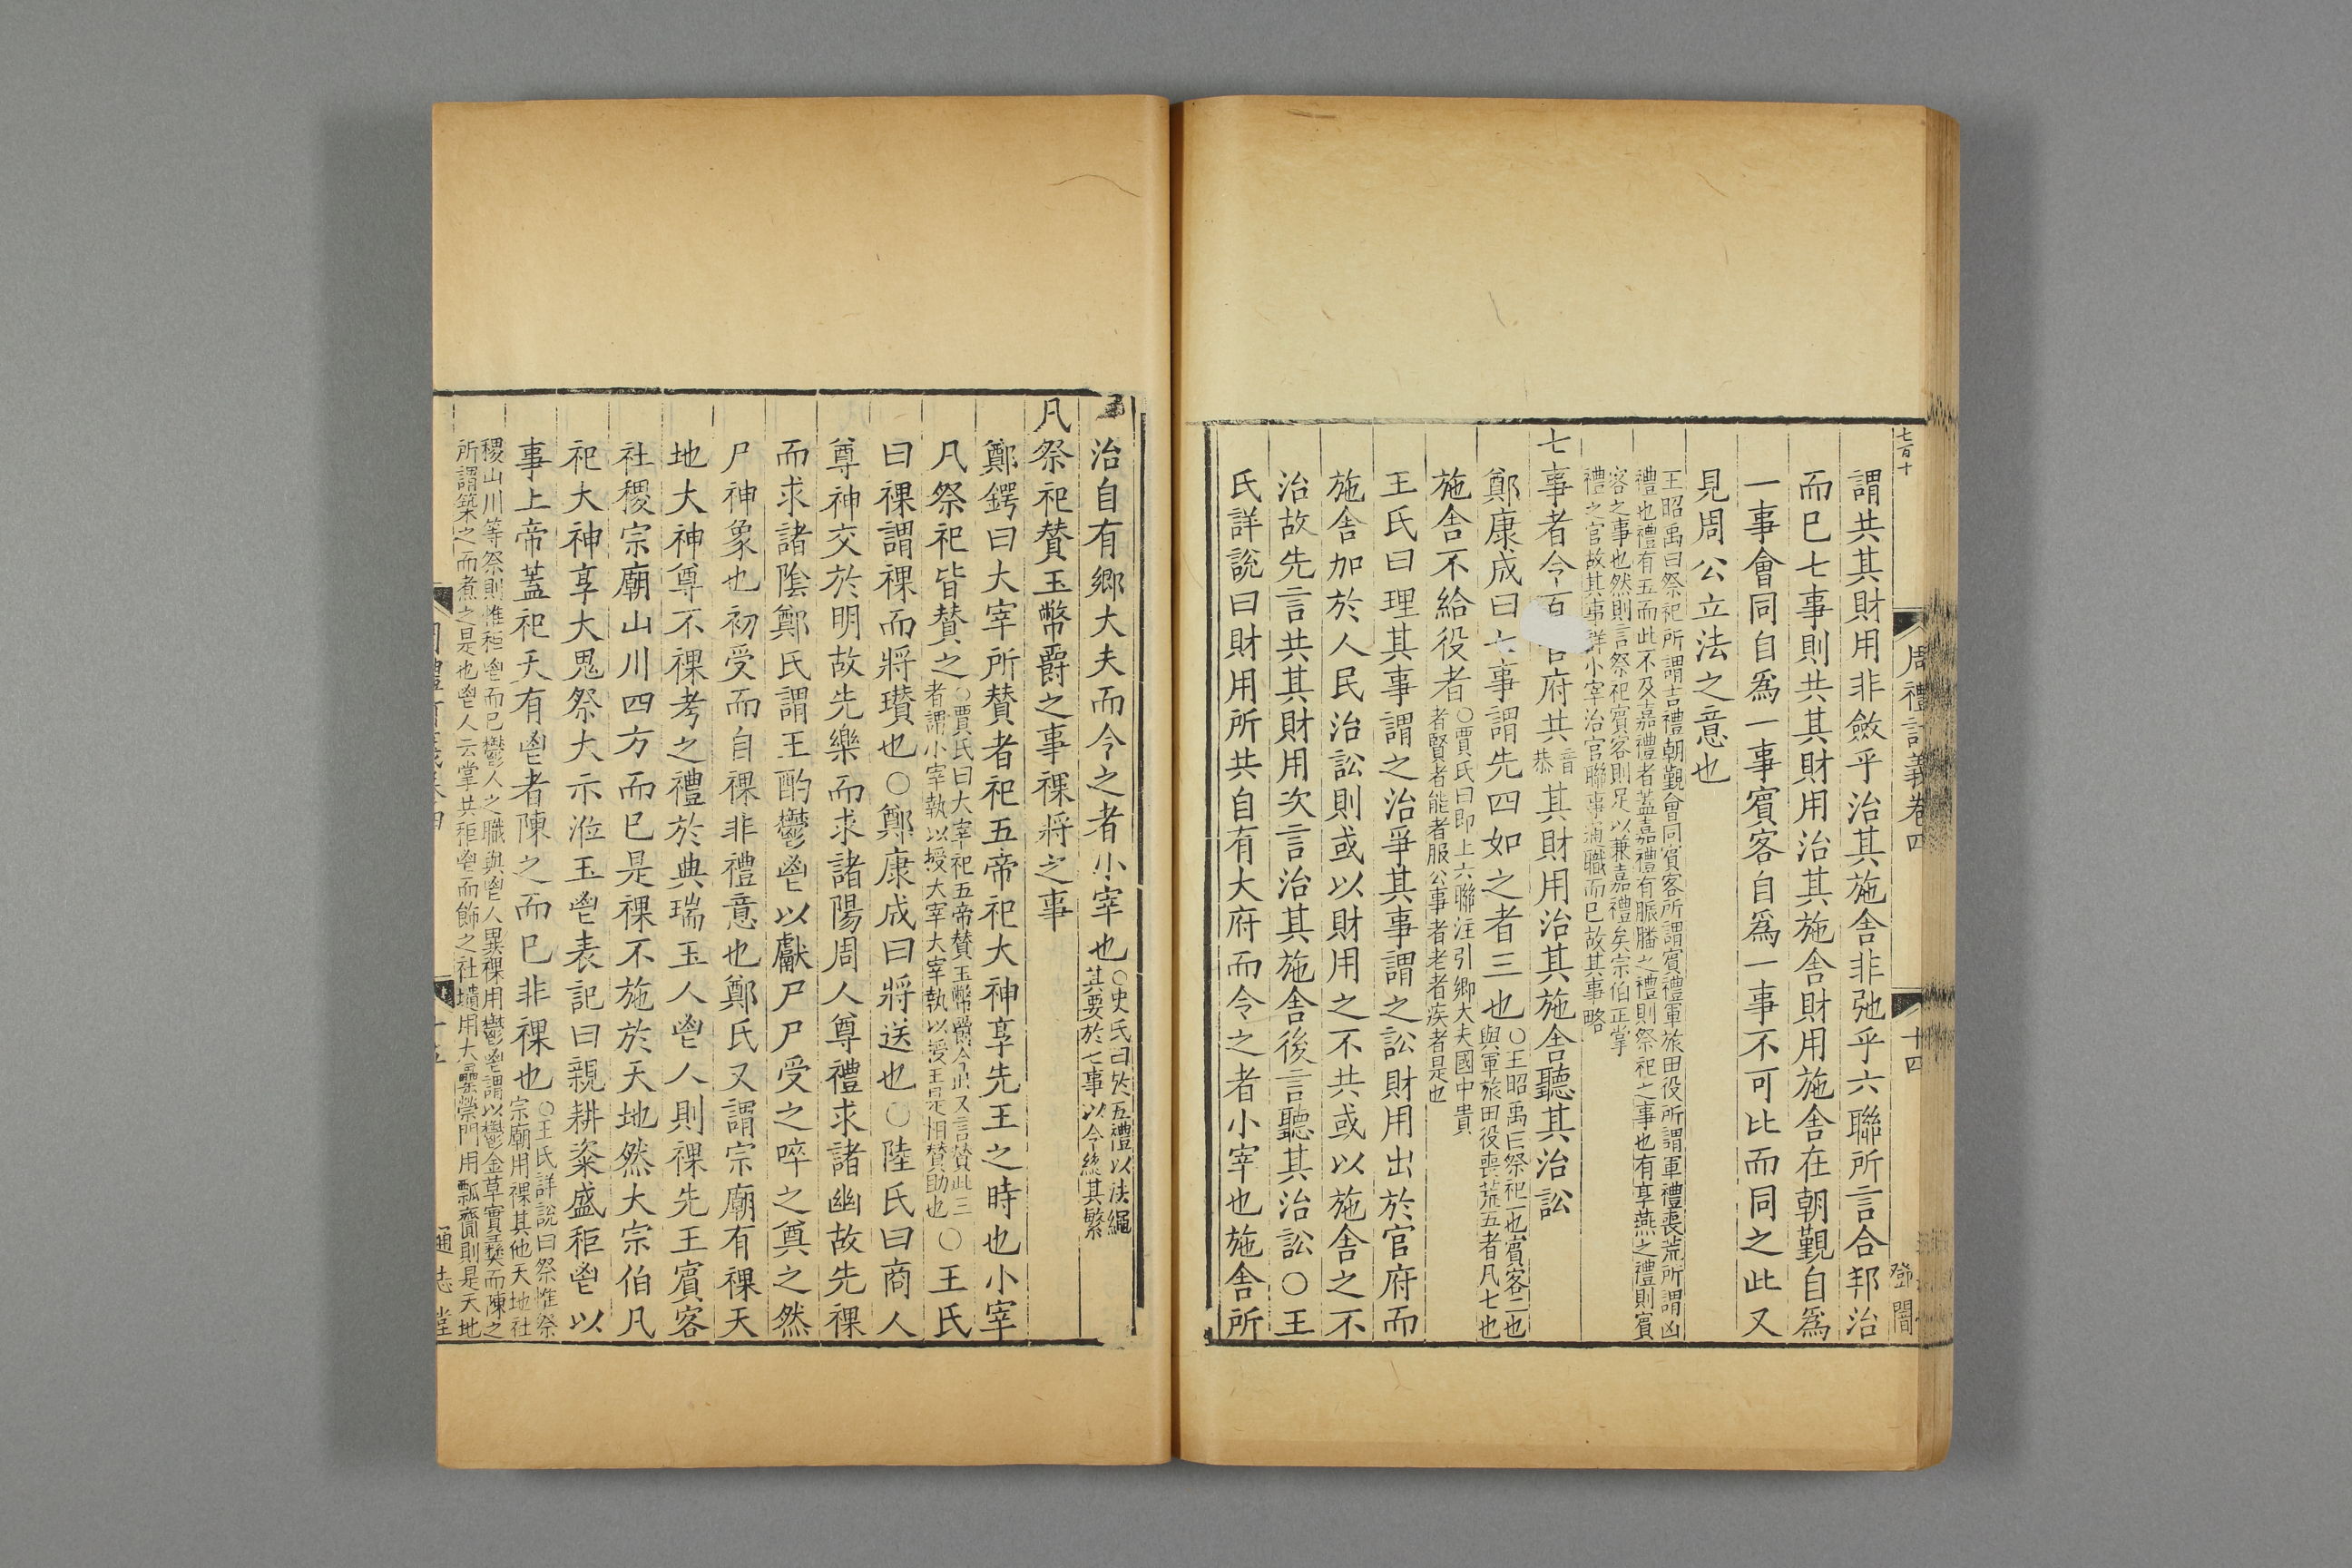 七百十
周禮訂義卷四
十四
登
謂共其財用非斂乎治其施舍非弛乎六聯所言合邦治
而已七事則共其財用治其施舍財用施舍在朝覲自爲
一事會同自爲一事賓客自爲一事不可比而同之此又
見周公立法之意也
王昭禹曰祭祀所謂吉禮朝覲會同賓客所謂賓禮軍旅田役所謂軍禮喪荒所謂凶
禮也禮有五而此不及嘉禮者蓋嘉禮有脤膰之禮則祭祀之事也有享燕之禮則賓
客之事也然則言祭祀賓客則足以兼嘉禮矣宗伯正掌
禮之官故其事詳小宰治官聯事通職而已故其事略
七事者令百官府共音恭其財用治其施舍聽其治訟
鄭康成曰七事謂先四如之者三也○王昭禹曰祭祀一也賓客二也與軍旅田役喪荒五者凡七也
施舍不給役者○賈氏曰即上六聯注引鄉大夫國中貴者賢者能者服公事者老者疾者是也
王氏曰理其事謂之治爭其事謂之訟財用出於官府而
施舍加於人民治訟則或以財用之不共或以施舍之不
治故先言共其財用次言治其施舍後言聽其治訟○王
氏詳說曰財用所共自有大府而令之者小宰也施舍所
治自有鄉大夫而令之者小宰也○史氏曰於五禮以法繩其要於七事以令總其繁
凡祭祀贊玉幣爵之事祼將之事
鄭鍔曰大宰所贊者祀五帝祀大神享先王之時也小宰
凡祭祀皆贊之○賈氏曰大宰祀五帝贊玉幣爵今此又言贊此三者謂小宰執以授大宰大宰執以授王是相贊助也○王氏
曰祼謂祼而將瓚也○鄭康成曰將送也○陸氏曰商人
尊神交於明故先樂而求諸陽周人尊禮求諸幽故先祼
而求諸陰鄭氏謂王酌鬱鬯以獻尸尸受之啐之奠之然
尸神象也初受而自祼非禮意也鄭氏又謂宗廟有祼天
地大神尊不祼考之禮於典瑞玉人鬯人則祼先王賓客
社稷宗廟山川四方而已是祼不施於天地然大宗伯凡
祀大神享大鬼祭大示涖玉鬯表記曰親耕粢盛秬鬯以
事上帝蓋祀天有鬯者陳之而已非祼也○王氏詳說曰祭惟祭宗廟用祼其他天地社
稷山川等祭則惟秬鬯而已鬱人之職與鬯人異祼用鬱鬯謂以鬱金草實彝而陳之
所謂築之而煮之是也鬯人云掌共秬鬯而飾之社壝用大罍禜門用瓢齎則是天地
十五
通志堂